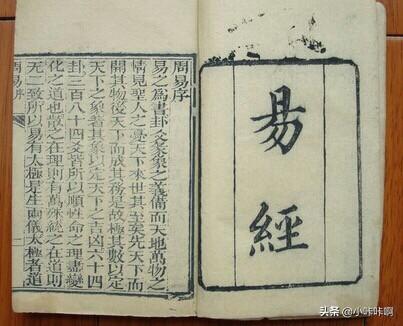 易經
周易序
易之為書卦爻彖象之義備而天地萬物之
情見聖人之憂天下來世其至矣先天下而
開其物後天下而成其務是故極其數以定
天下之象著其象以定天下之吉凶六十四
卦三百八十四爻皆所以順性命之理盡變
化之道也散之在理則有萬殊統之在道則
无二致所以易有太極是生兩儀太極者道
周易序
一
头条 @小咔咔啊